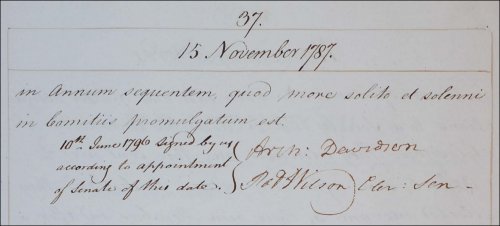 37.
15 November 1787.
in Annum sequentem, quod more solito et solenni
in Comitiis promulgatum est.
10th June 1796 Signed by us
according to appointment
of Senate of this date.
Arch: Davidson
Pat Wilson Cler: Sen